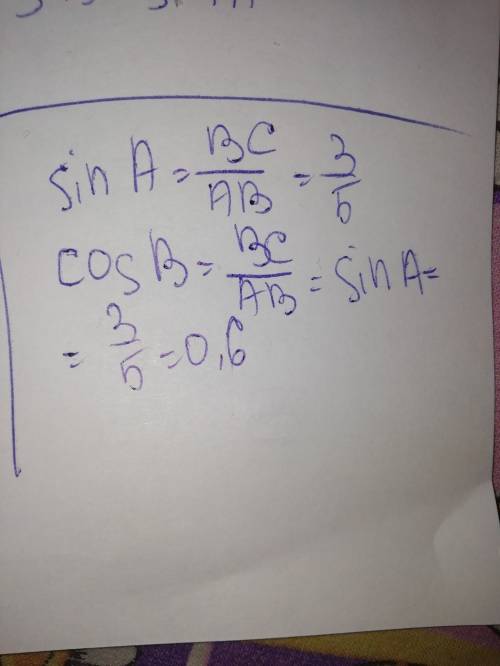 sin A = BC/AB = 3/5
cos B = BC/AB = sin A =
= 3/5 = 0,6